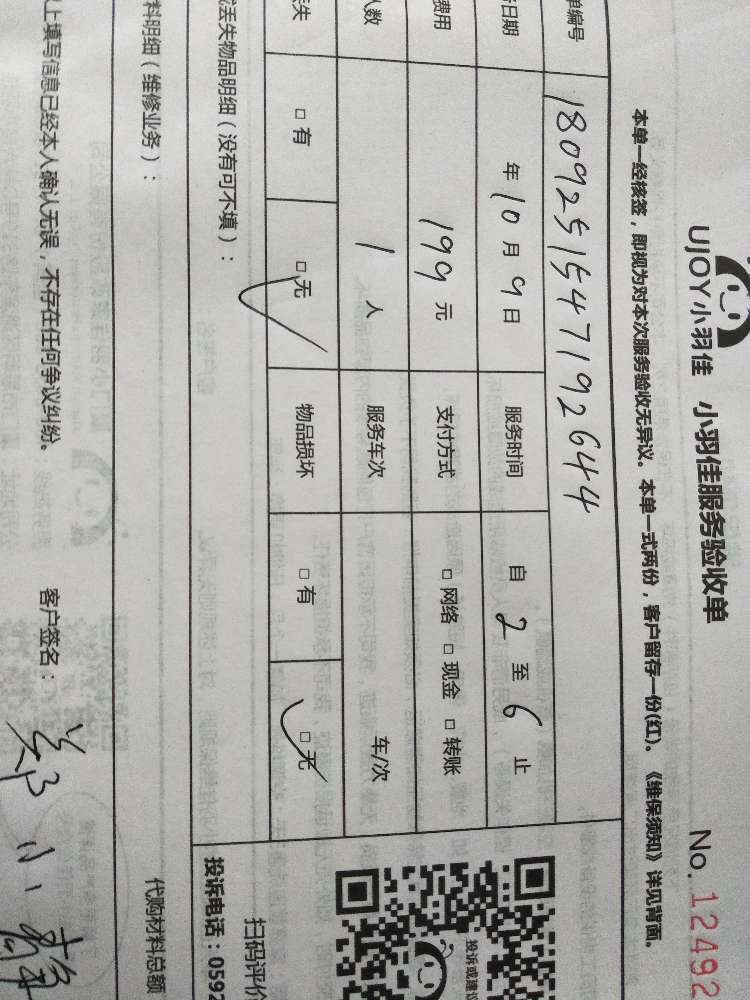 UJOY小羽佳 小羽佳服务验收单 No.12492
本单一经核签，即视为对本次服务验收无异议。本单一式两份，客户留存一份(红)。《维保须知》详见背面。
单编号 1809251547192644
日期 年10月9日 服务时间 自2至6止
费用 199元 支付方式 □网络 □现金 □转账
人数 1人 服务车次 车/次
丢失 □有 □无 物品损坏 □有 □无
丢失物品明细（没有可不填）：
投诉电话：0592
扫码评价
投诉或建议
料明细（维修业务）： 代购材料总额
上填写信息已经本人确认无误，不存在任何争议纠纷。 客户签名：